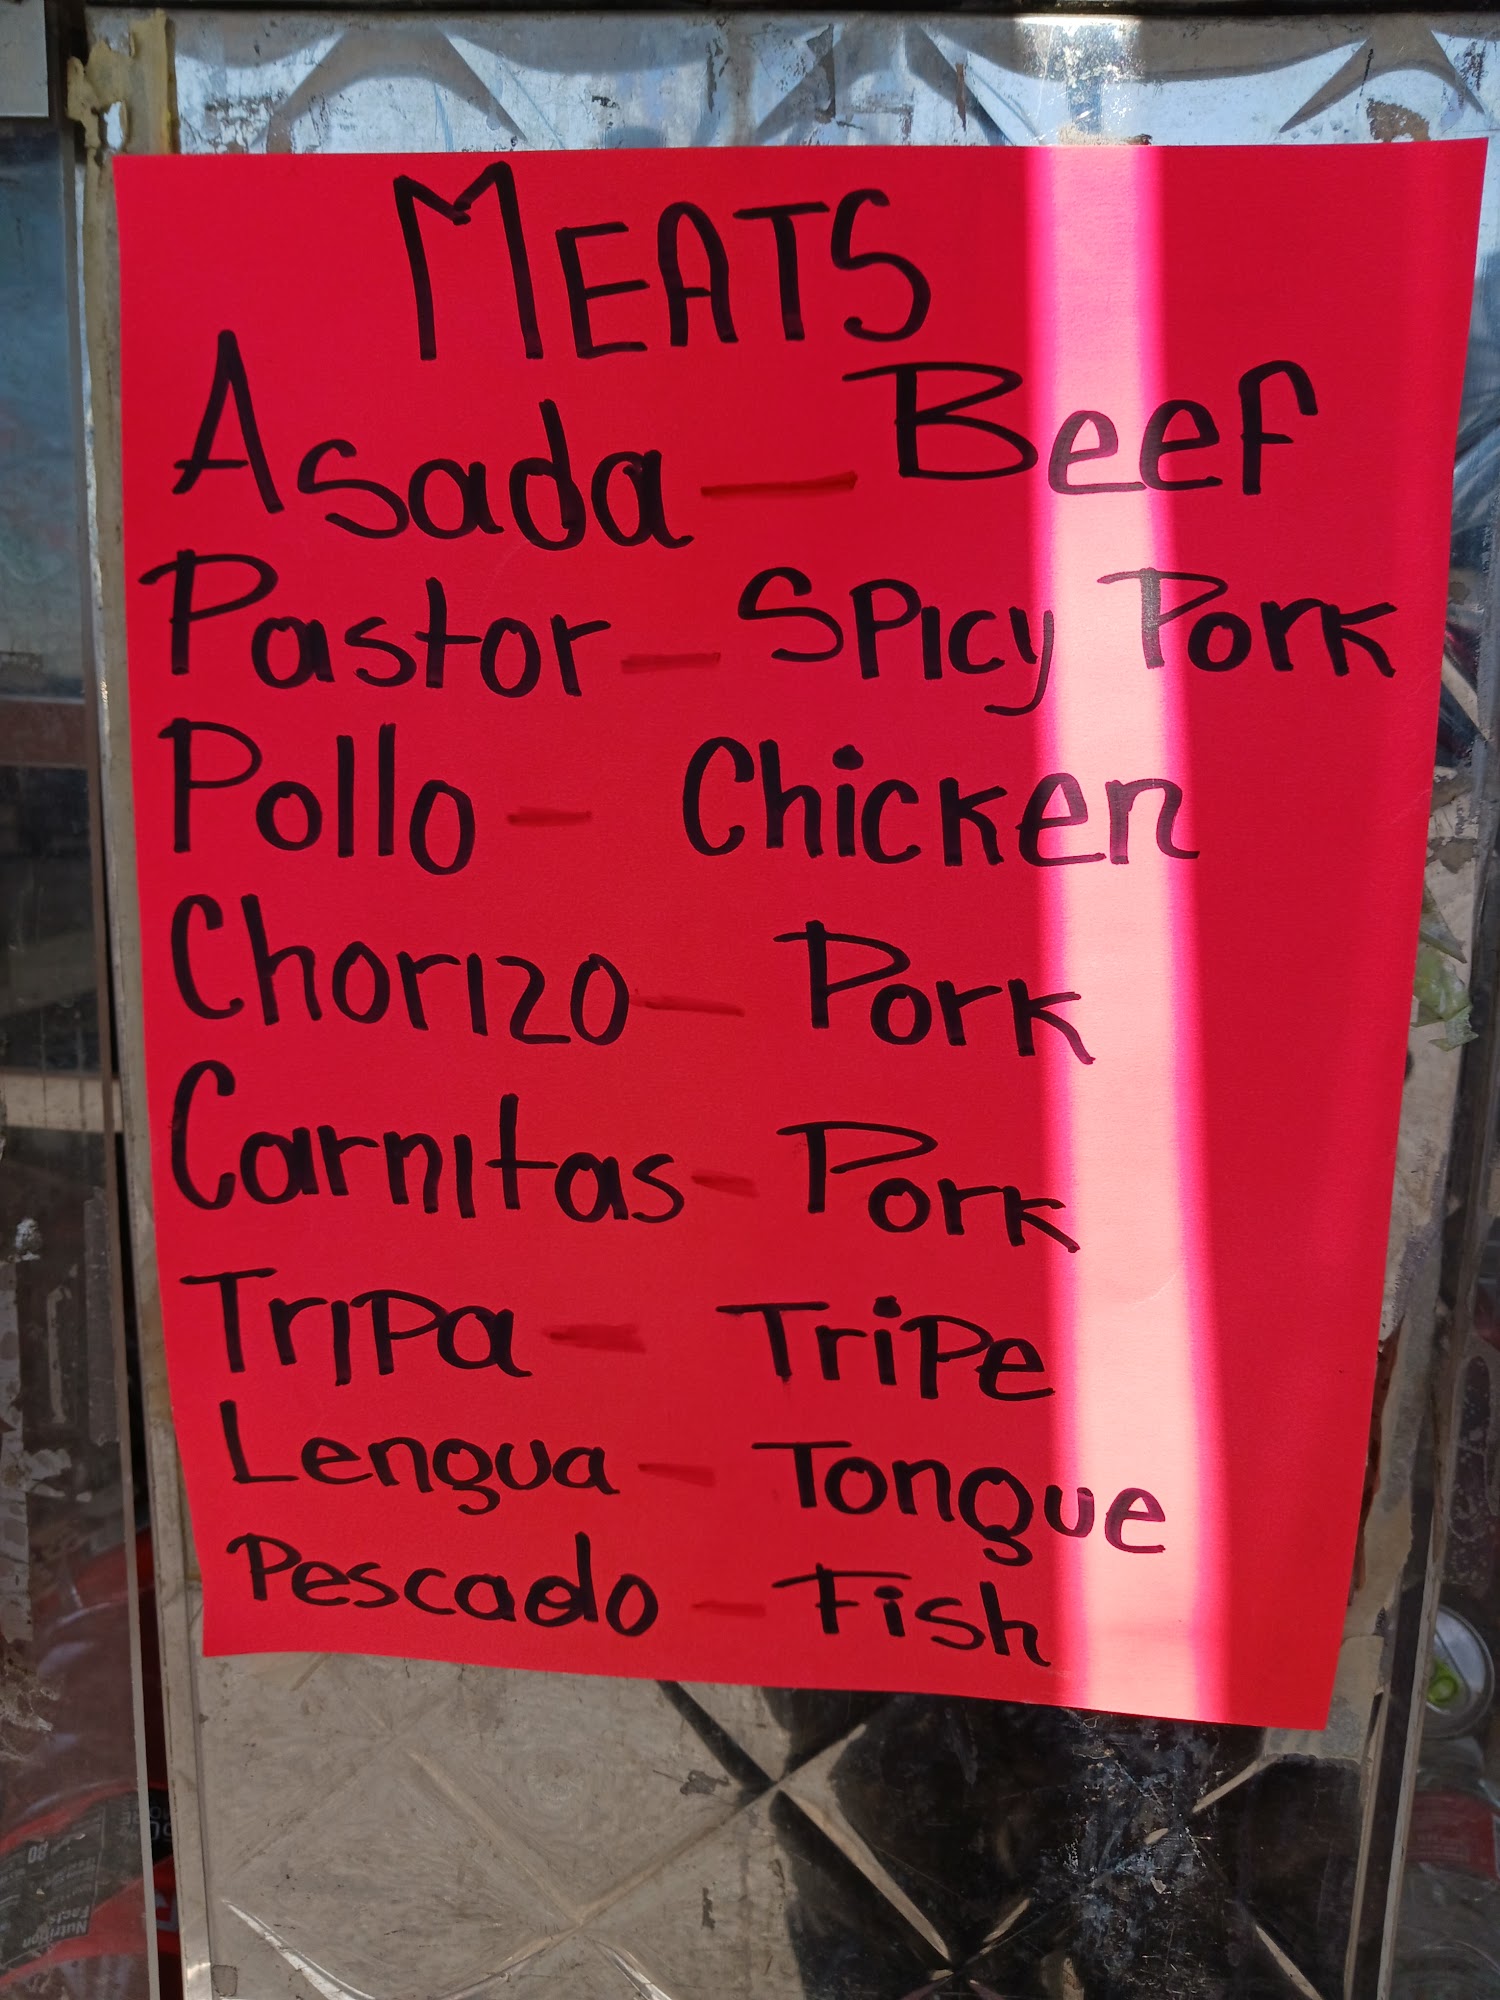 MEATS
Asada - Beef
Pastor - Spicy Pork
Pollo - Chicken
Chorizo - Pork
Carnitas - Pork
Tripa - Tripe
Lengua - Tongue
Pescado - Fish
80
Nutrition
Facts